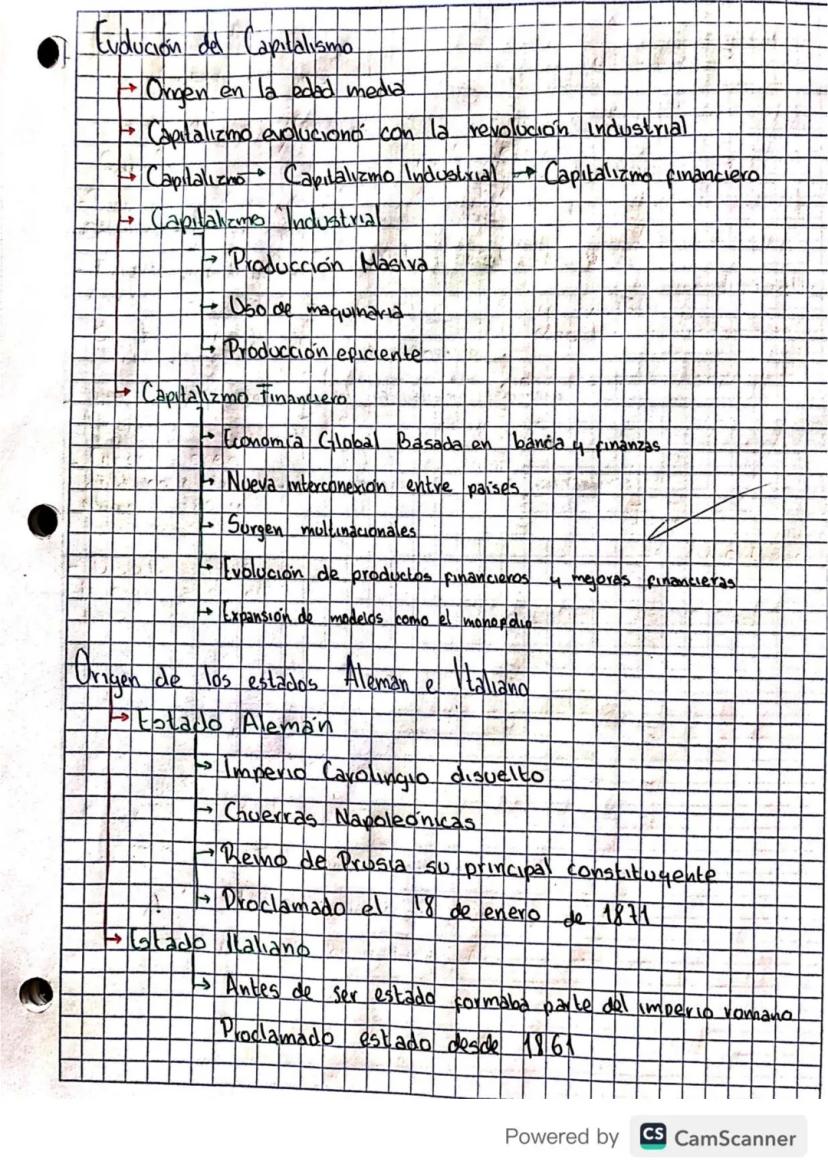 Evolución del Capitalismo
→ Origen en la edad media
→ Capitalizmo evolucionó con la revolución industrial
→ Capitalizmo → Capitalizmo Industrial → Capitalizmo financiero
→ Capitalizmo Industrial
→ Producción Masiva
→ Uso de maquinaria
→ Producción eficiente
→ Capitalizmo Financiero
→ Economía Global Basada en banca y finanzas
→ Nueva interconexión entre paises
→ Surgen multinacionales
→ Evolución de productos financieros y mejoras financieras
→ Expansión de modelos como el monopolio
Origen de los estados Alemán e Italiano
→ Estado Alemán
→ Imperio Carolingio disuelto
→ Guerras Napoleónicas
→ Reino de Prusia su principal constituyente
→ Proclamado el 18 de enero de 1871
→ Estado Italiano
→ Antes de ser estado formaba parte del imperio romano
Proclamado estado desde 1861
Powered by CS CamScanner